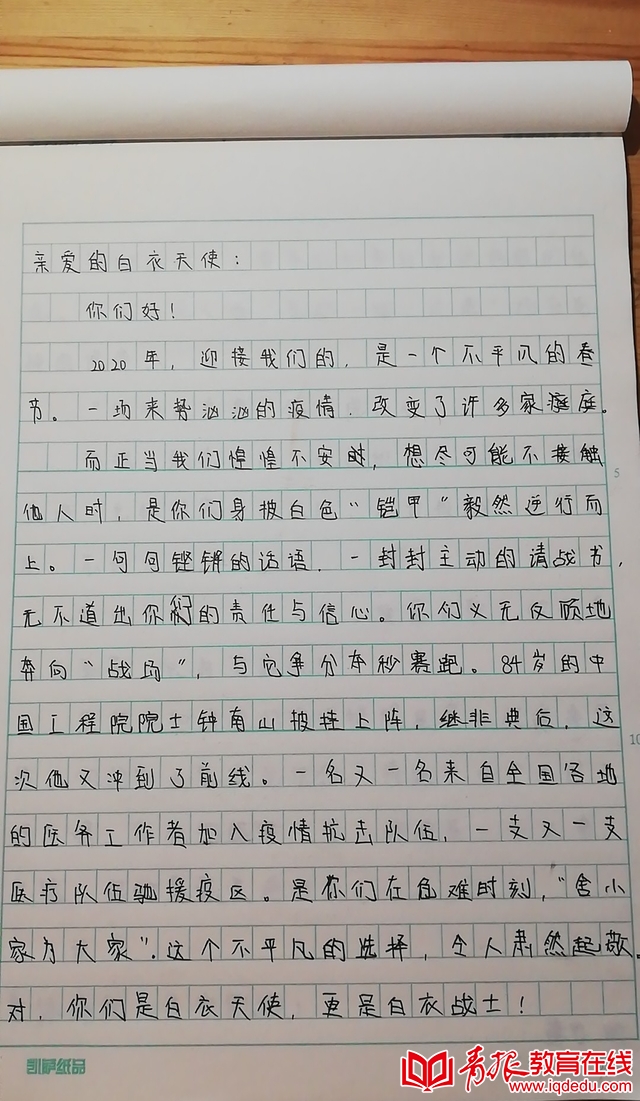 亲爱的白衣天使：
你们好！
2020年，迎接我们的，是一个不平凡的春
节。一场来势汹汹的疫情，改变了许多家庭。
而正当我们惶惶不安时，想尽可能不接触
他人时，是你们身披白色“铠甲”毅然逆行而
上。一句句铿锵的话语，一封封主动的请战书，
无不道出你们的责任与信心。你们义无反顾地
奔向“战场”，与它争分夺秒赛跑。84岁的中
国工程院院士钟南山披挂上阵，继非典后，这
次他又冲到了前线。一名又一名来自全国各地
的医务工作者加入疫情抗击队伍，一支又一支
医疗队伍驰援疫区。是你们在危难时刻，“舍小
家为大家”。这个不平凡的选择，令人肃然起敬。
对，你们是白衣天使，更是白衣战士！
5
10
凯萨纸品
青报教育在线
www.iqdedu.com